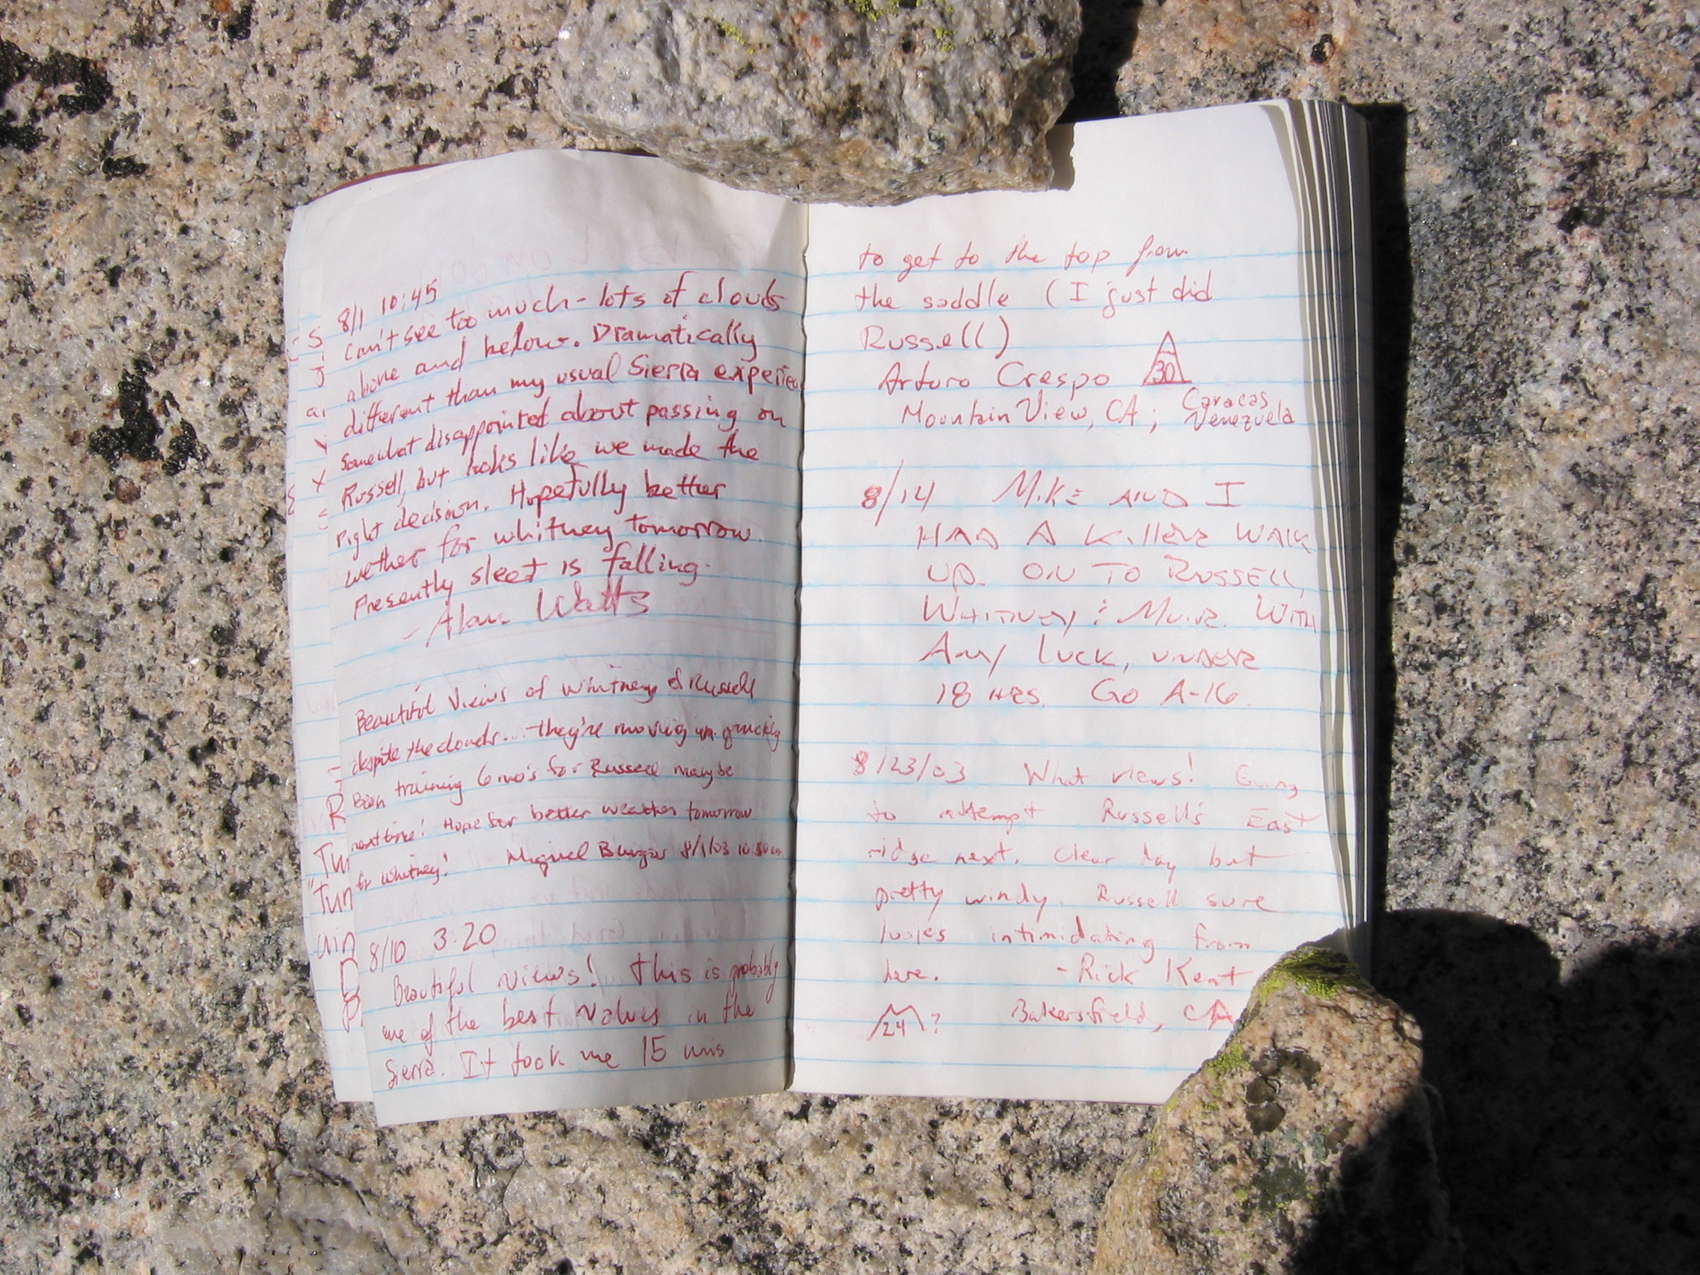 8/1 10:45
can't see too much - lots of clouds
above and below. Dramatically
different than my usual Sierra experien
Somewhat disappointed about passing on
Russell, but looks like we made the
right decision. Hopefully better
wether for whitney tomorrow.
Presently sleet is falling.
- Alan Watts
Beautiful Views of Whitney & Russell
despite the clouds... they're moving in quickly
Been training 6 mo's for Russell maybe
next time! Hope for better weather tomorrow
for Whitney! Miguel 8/1/03
8/10 3:20
Beautiful views! This is probably
one of the best values in the
Sierra. It took me 15 mins
to get to the top from
the saddle (I just did
Russell)
Arturo Crespo 30
Mountain View, CA; Caracas
Venezuela
8/14 Mike AND I
HAD A Killer WALK
UP. ON TO RUSSELL,
WHITNEY & MUIR. WITH
ANY LUCK, UNDER
18 HRS. GO A-16.
8/23/03 What views! Going
to attempt Russell's East
ridge next. Clear day but
pretty windy. Russell sure
looks intimidating from
here. - Rick Kent
24? Bakersfield, CA